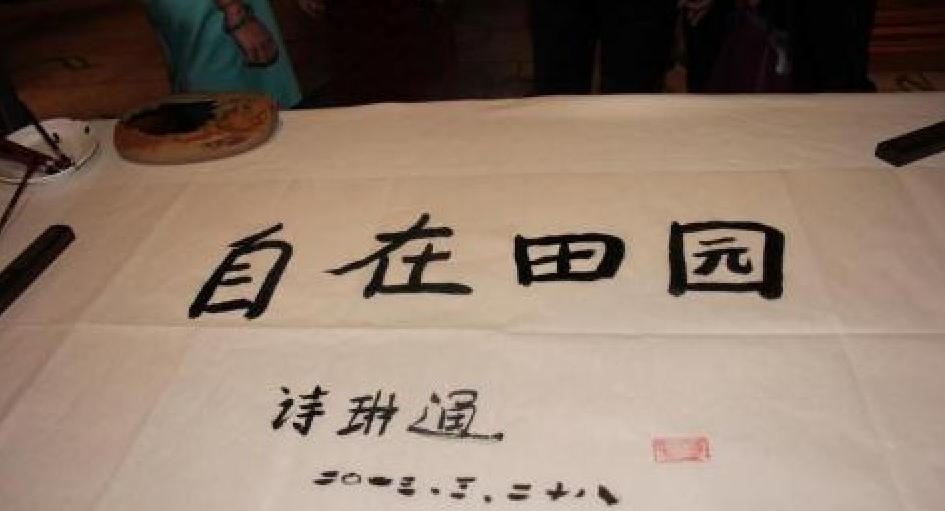 自在田园
诗琳通
二〇一三.三.二十八